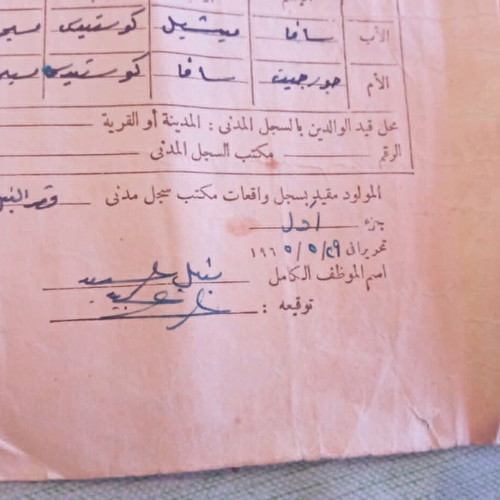 الأب سافا ميشيل كوستيدى
الأم جورجيت سافا كوستيدى
محل قيد الوالدين بالسجل المدنى : المدينة أو القرية
الرقم مكتب السجل المدنى
المولود مقيد بسجل واقعات مكتب سجل مدنى قصر النيل
جزء أول
تحريرا فى ٢٩ / ٥ / ١٩٦٥
اسم الموظف الكامل نبيل
توقيعه :